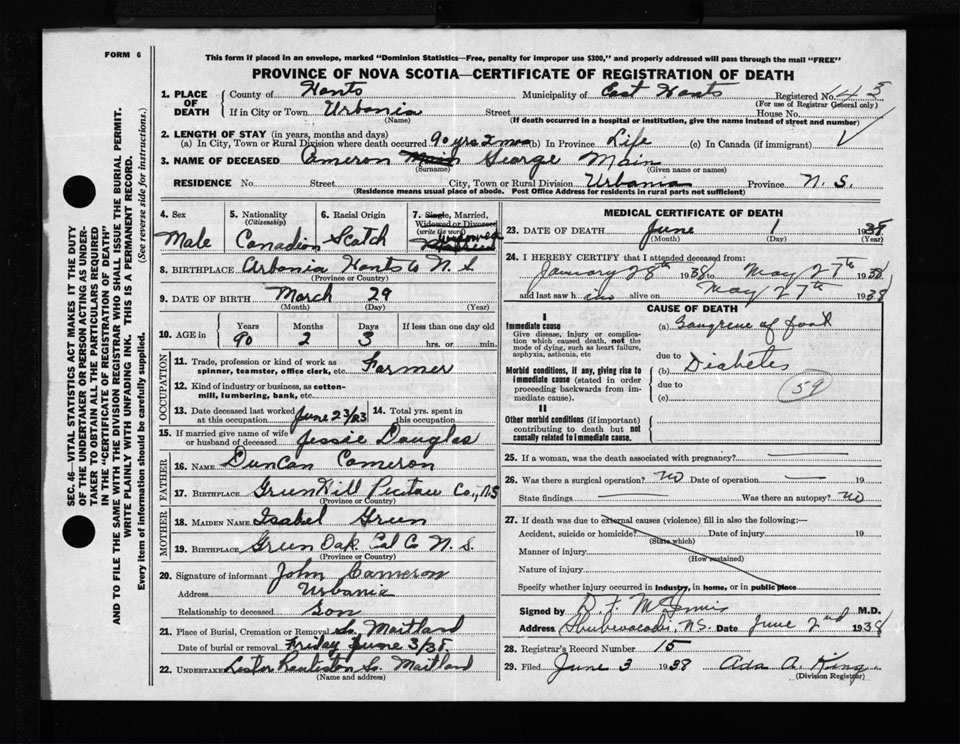 FORM 6
This form if placed in an envelope, marked "Dominion Statistics—Free, penalty for improper use $300," and properly addressed will pass through the mail "FREE"
PROVINCE OF NOVA SCOTIA—CERTIFICATE OF REGISTRATION OF DEATH
1. PLACE OF DEATH County of Hants Municipality of East Hants Registered No. 143
(For use of Registrar General only)
If in City or Town Urbania Street House No.
(Name) (If death occurred in a hospital or institution, give the name instead of street and number)
2. LENGTH OF STAY (in years, months and days)
(a) In City, Town or Rural Division where death occurred 90 yrs 2 mos (b) In Province Life (c) In Canada (if immigrant)
3. NAME OF DECEASED Cameron Main George Main
(Surname) (Given name or names)
RESIDENCE No. Street City, Town or Rural Division Urbania Province N. S.
(Residence means usual place of abode. Post Office Address for residents in rural parts not sufficient)
4. Sex Male
5. Nationality (Citizenship) Canadian
6. Racial Origin Scotch
7. Single, Married, Widowed or Divorced (write the word) Widowed
8. BIRTHPLACE Urbania Hants Co N. S
(Province or Country)
9. DATE OF BIRTH March 29
(Month) (Day) (Year)
10. AGE in Years 90 Months 2 Days 3 If less than one day old hrs. or min.
OCCUPATION
11. Trade, profession or kind of work as spinner, teamster, office clerk, etc. Farmer
12. Kind of industry or business, as cotton-mill, lumbering, bank, etc.
13. Date deceased last worked at this occupation June 23/23
14. Total yrs. spent in this occupation
15. If married give name of wife or husband of deceased Jessie Douglas
FATHER
16. NAME Duncan Cameron
17. BIRTHPLACE Green Hill Pictou Co., N.S
(Province or Country)
MOTHER
18. MAIDEN NAME Isabel Green
19. BIRTHPLACE Green Oak Col Co N. S.
(Province or Country)
20. Signature of informant John Cameron
Address Urbania
Relationship to deceased Son
21. Place of Burial, Cremation or Removal So. Maitland
Date of burial or removal Friday June 3/38
22. UNDERTAKER So. Maitland
(Name and address)
MEDICAL CERTIFICATE OF DEATH
23. DATE OF DEATH June 1 1938
(Month) (Day) (Year)
24. I HEREBY CERTIFY that I attended deceased from:
January 28th 1938 to May 27th 1938
and last saw him alive on May 27th 1938
CAUSE OF DEATH
I
Immediate cause
Give disease, injury or complication which caused death, not the mode of dying, such as heart failure, asphyxia, asthenia, etc
(a) Gangrene of foot
due to
Morbid conditions, if any, giving rise to immediate cause (stated in order proceeding backwards from immediate cause).
(b) Diabetes
due to 59
(c)
II
Other morbid conditions (if important) contributing to death but not causally related to immediate cause.
25. If a woman, was the death associated with pregnancy?
26. Was there a surgical operation? NO Date of operation 19
State findings Was there an autopsy? NO
27. If death was due to external causes (violence) fill in also the following:—
Accident, suicide or homicide? Date of injury 19
(State which)
Manner of injury
(How sustained)
Nature of injury
Specify whether injury occurred in industry, in home, or in public place
Signed by D. F. McInnis M.D.
Address Shubenacadie, N.S. Date June 2nd 1938
28. Registrar's Record Number 15
29. Filed June 3 1938 Ada A. King
(Division Registrar)
SEC. 46—VITAL STATISTICS ACT MAKES IT THE DUTY
OF THE UNDERTAKER OR PERSON ACTING AS UNDER-
TAKER TO OBTAIN ALL THE PARTICULARS REQUIRED
IN THE "CERTIFICATE OF REGISTRATION OF DEATH"
AND TO FILE THE SAME WITH THE DIVISION REGISTRAR WHO SHALL ISSUE THE BURIAL PERMIT.
WRITE PLAINLY WITH UNFADING INK. THIS IS A PERMANENT RECORD.
Every item of information should be carefully supplied. (See reverse side for instructions.)